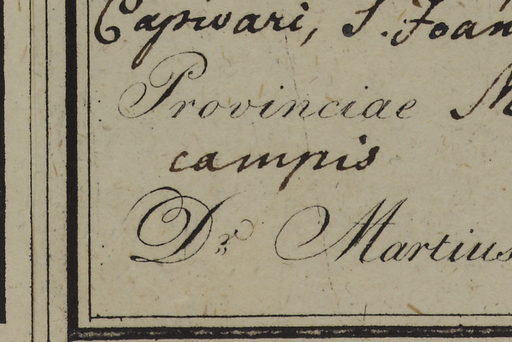 Capivari, S. Joan
Provinciae M
campis
Dr. Martius